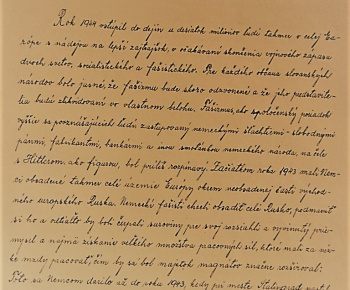 Rok 1944 vstúpil do dejín u desiatok miliónov ľudí takmer v celej Eu-
rópe s nádejou na lepší zajtrajšok, v očakávaní skončenia vojnového zápasu
dvoch svetov, socialistického a fašistického. Pre každého občana slovanských
národov bolo jasné, že fašizmu bude skoro odzvonené a že jeho predstavite-
lia budú zlikvidovaní vo vlastnom brlohu. Fašizmus, ako spoločenský poriadok
vyššie sa považujúcich ľudí, zastupovaný nemeckými šľachticmi - slobodnými
pánmi, fabrikantmi, bankármi a inou smotánkou nemeckého národa, na čele
s Hitlerom, ako figúrou, bol príliš rozpínavý. Začiatkom roka 1943 mali Nem-
ci obsadené takmer celé územie Európy okrem neobsadenej časti východ-
ného európskeho Ruska. Nemeckí fašisti chceli obsadiť celé Rusko, podmaniť
si ho a odtiaľto by boli čerpali suroviny pre svoj rozsiahly a vyvinutý prie-
mysel a najmä získanie veľkého množstva pracovných síl, ktoré mali za níz-
ke mzdy pracovať, čím by sa bol majetok magnátov značne zväčšoval.
Toto sa Nemcom darilo až do roku 1943, kedy pri meste Stalingrad